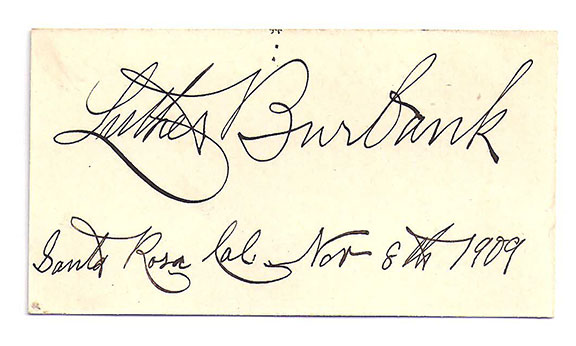 Luther Burbank
Santa Rosa Cal. Nov 8th 1909